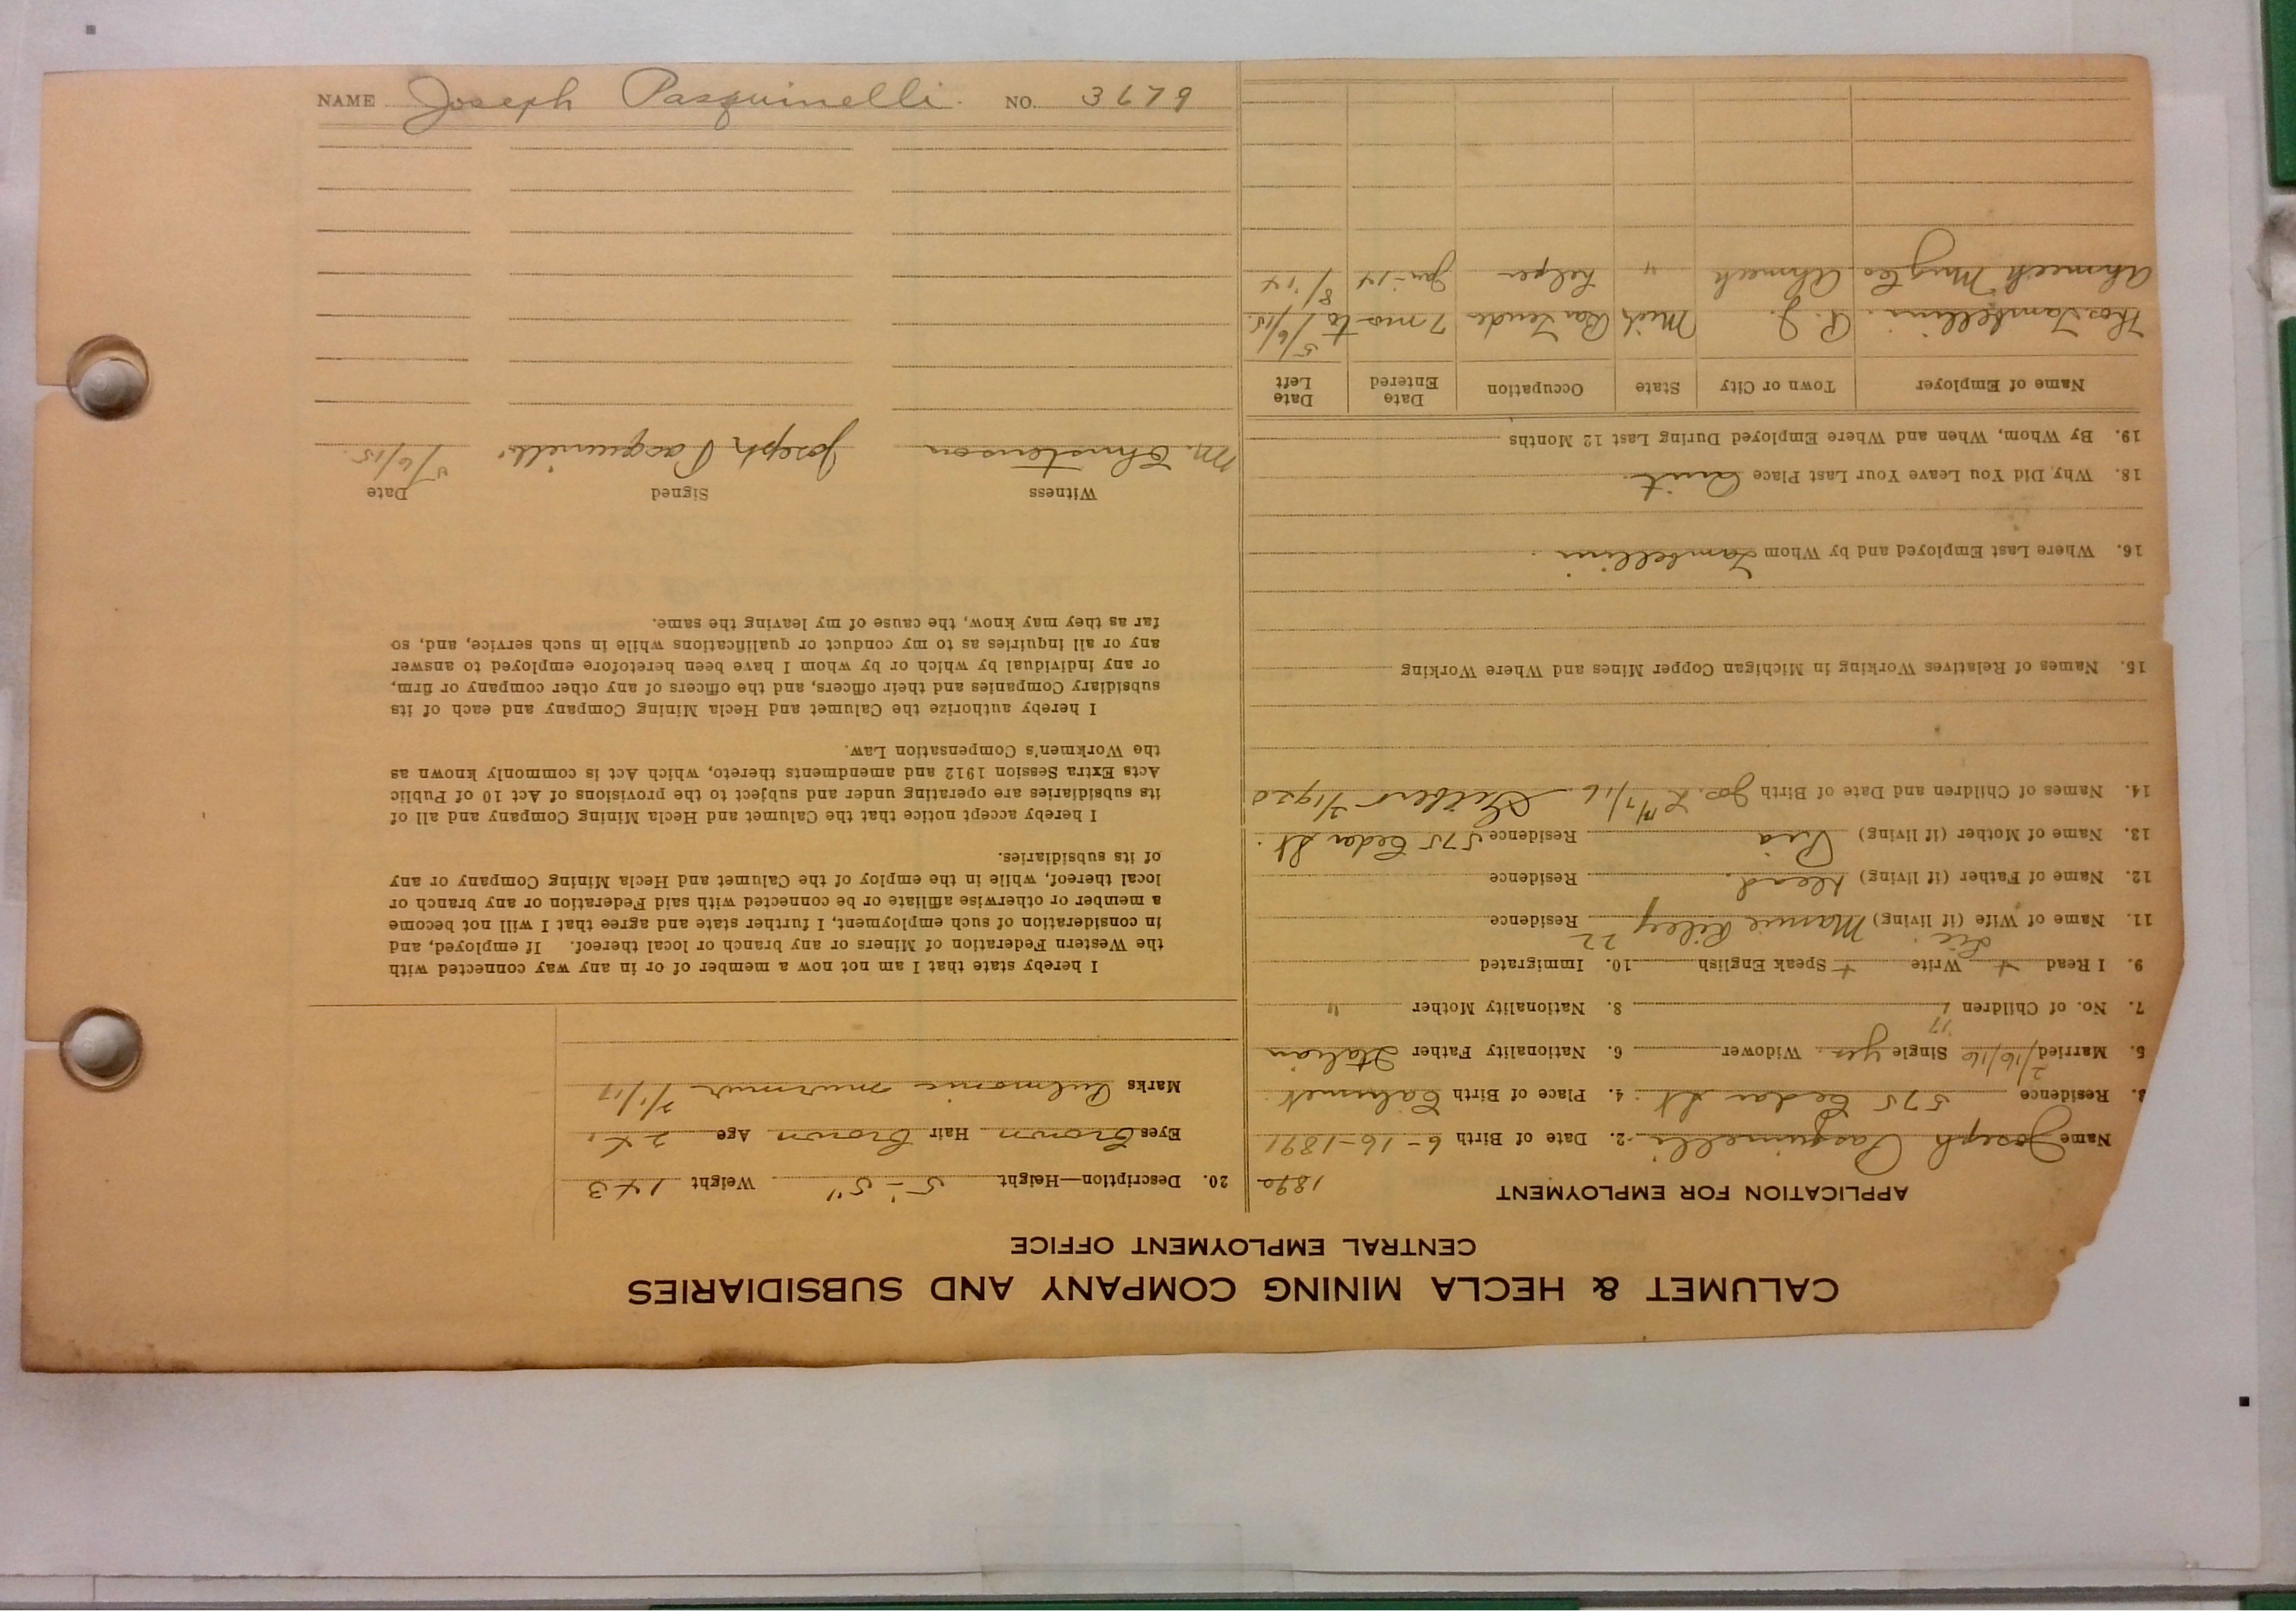 NAME Joseph Pasquinelli. NO. 3679
CALUMET & HECLA MINING COMPANY AND SUBSIDIARIES
CENTRAL EMPLOYMENT OFFICE
APPLICATION FOR EMPLOYMENT 1890
Name Joseph Pasquinelli 2. Date of Birth 6-16-1891
3. Residence 575 Cedar St. 4. Place of Birth Calumet.
5. Married 2/16/16 Single yes. Widower 6. Nationality Father Italian
7. No. of Children 1 8. Nationality Mother "
9. I Read + Write + Speak English 10. Immigrated
11. Name of Wife (if living) Mamie Riley 22 Residence
12. Name of Father (if living) Dead. Residence
13. Name of Mother (if living) Residence 575 Cedar St.
14. Names of Children and Date of Birth Jos.
15. Names of Relatives Working in Michigan Copper Mines and Where Working
16. Where Last Employed and by Whom
18. Why Did You Leave Your Last Place Quit.
19. By Whom, When and Where Employed During Last 12 Months
Name of Employer Town or City State Occupation Date Entered Date Left
R. J. Mich Bar Tender 7 mos to 5/6/15.
Ahmeek Mng Co Ahmeek " helper Jan-14 8/14
20. Description—Height 5-5" Weight 143
Eyes Brown Hair Brown Age 24.
Marks Pulmonic murmur
I hereby state that I am not now a member of or in any way connected with
the Western Federation of Miners or any branch or local thereof. If employed, and
in consideration of such employment, I further state and agree that I will not become
a member or otherwise affiliate or be connected with said Federation or any branch or
local thereof, while in the employ of the Calumet and Hecla Mining Company or any
of its subsidiaries.
I hereby accept notice that the Calumet and Hecla Mining Company and all of
its subsidiaries are operating under and subject to the provisions of Act 10 of Public
Acts Extra Session 1912 and amendments thereto, which Act is commonly known as
the Workmen's Compensation Law.
I hereby authorize the Calumet and Hecla Mining Company and each of its
subsidiary Companies and their officers, and the officers of any other company or firm,
or any individual by which or by whom I have been heretofore employed to answer
any or all inquiries as to my conduct or qualifications while in such service, and, so
far as they may know, the cause of my leaving the same.
Witness Signed Date
M. Christenson Joseph Pasquinelli 5/6/15.